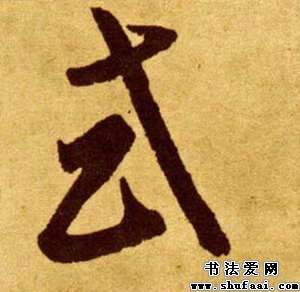 式
书法爱网
www.shufaai.com